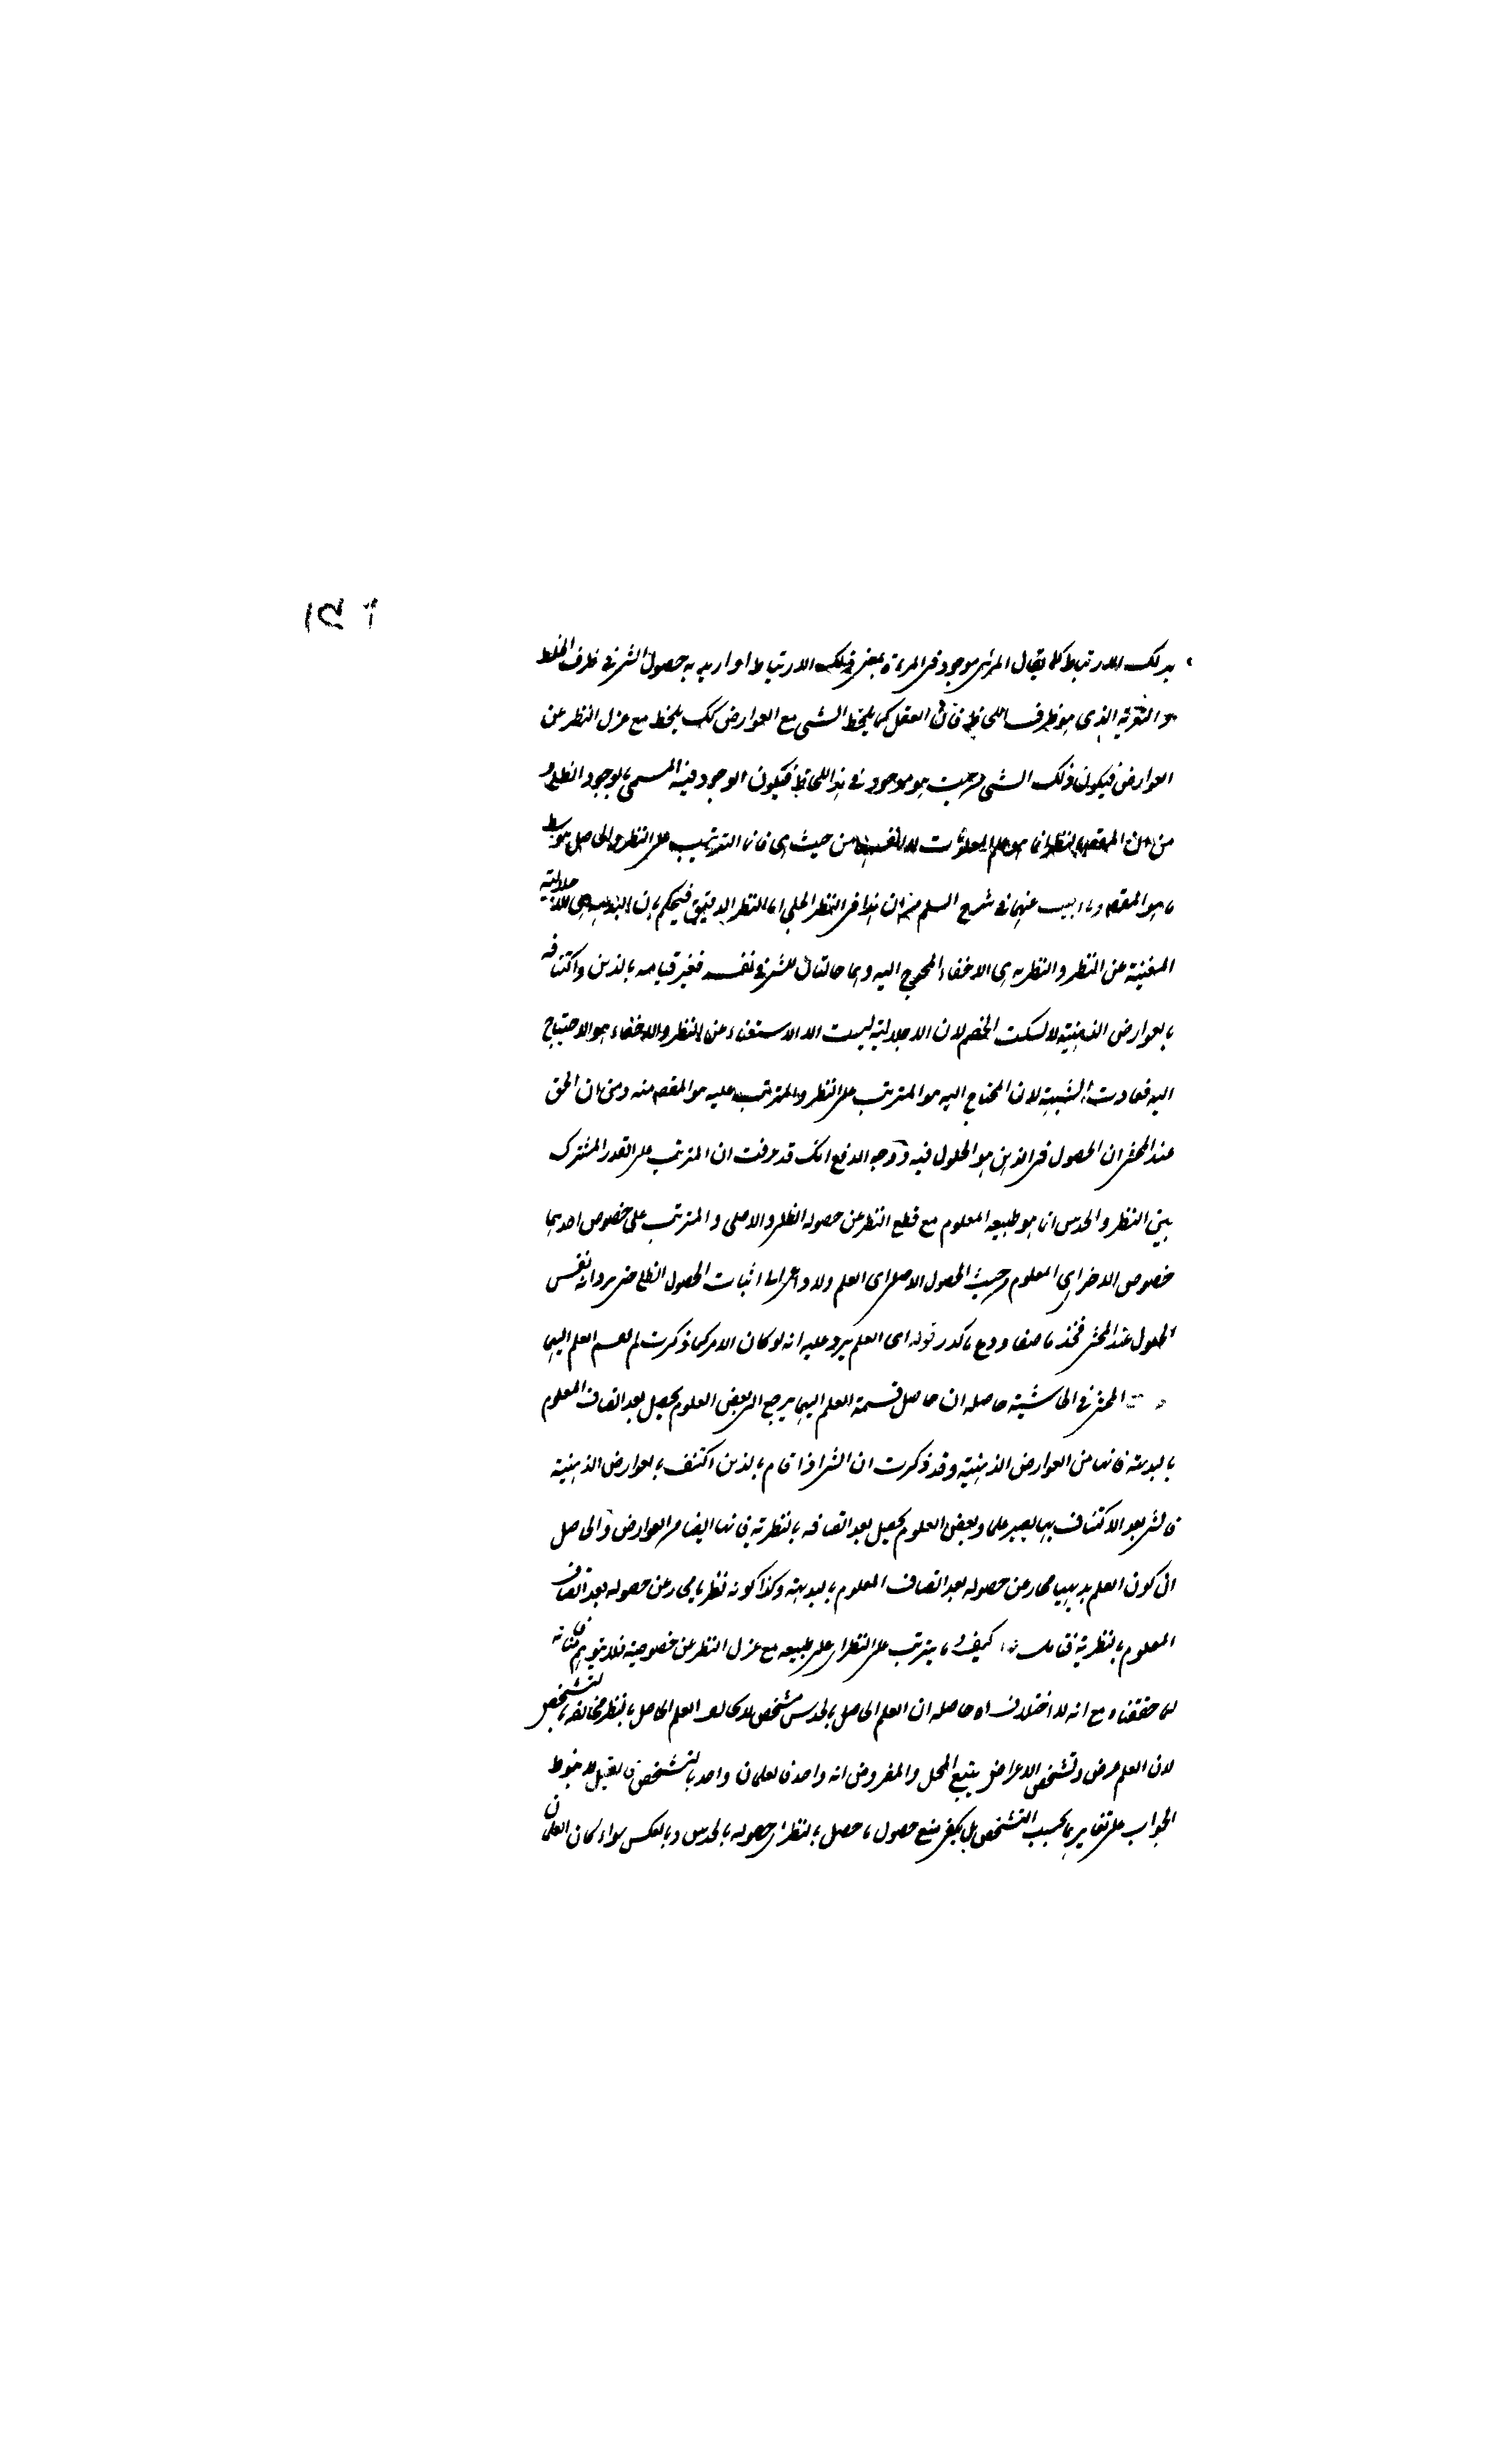 بذلك الارتباط كما يقال المرئى موجود فى المرءة بمعنى ذلك الارتباط او اريد به حصول الشئ فى ظرف الخلط
و التعرية الذى هو ظرف اللحاظ فان العقل كما يلحظ الشئ مع العوارض كك يلحظ مع عزل النظر عن
العوارض فيكون ذلك الشئ من حيث هو موجود فى هذا اللحاظ فيكون الوجود فيه المسمى بالوجود الظلى و
من ان المقصد بالنظر انما هو علم المعلومات لا انفسها من حيث هى فانما الترتيب على النظر والحاصل بتوسط
ما هو المقصد وما اجيب عنها فى شرح السلم من ان هذا فى النظر الجلى اما النظر الدقيق فيحكم بان البداهة هى الاجلائية
المغنية عن النظر والنظرية هى الاخفاء المحوج اليه وهما حالتان للشئ فى نفسه فغير قيامه بالذهن واكتنافه
بالعوارض الذهنية لا يسكت الخصم لان الاجلائية ليست الا الاستغناء عن النظر والاخفاء هو الاحتياج
اليه فعادت الشبهة لان المحتاج اليه هو المترتب على النظر والمترتب عليه هو المقصد منه ومن ان الحق
عند المحشى ان الحصول فى الذهن هو الحلول فيه ووجه الدفع انك قد عرفت ان المترتب على القدر المشترك
بين النظر والحدس انما هو طبيعة المعلوم مع قطع النظر عن حصوله الظلى والاصلى و المترتب على خصوص احدهما
خصوص الاخر اى المعلوم من حيث الحصول الاصلى اى العلم ولا داعى الى اثبات الحصول الظلى حتى يرد انه نفس
الحلول عند المحشى فخذ ما صفا ودع ما كدر قوله اى العلم يرد عليه انه لو كان الامر كما ذكرت لم يقسم العلم اليهما
المحشى فى الحاشية حاصله ان حاصل قسمة العلم اليهما يرجع الى بعض العلوم يحصل بعد اتصاف المعلوم
بالبداهة فانها من العوارض الذهنية وقد ذكرت ان الشئ اذا قام بالذهن اكتنف بالعوارض الذهنية
فالشئ بعد الاكتناف بها يصير علما وبعض العلوم يحصل بعد اتصافه بالنظرية فانها ايضا من العوارض والحاصل
ان كون العلم بديهيا مجاز عن حصوله بعد اتصاف المعلوم بالبداهة وكذا كونه نظريا مجاز عن حصوله بعد اتصاف
المعلوم بالنظرية فتامل كيف وما يترتب على النظر اى على طبيعه مع عزل النظر عن خصوصية فلا يتوهم منافاته
لما حققناه مع انه لا اختلاف اه حاصله ان العلم الحاصل بالحدس متشخص لا يخالف العلم الحاصل بالنظر مخالفه بالتشخص
لان العلم عرض وتشخص الاعراض يتبع المحل والمفروض انه واحد فالعلمان واحد بالتشخص فما يقبل لا ينوط
الجواب على تغايرهما بحسب التشخص بل يكفى منع حصول ما حصل بالنظر اى حصوله بالحدس وبالعكس سواء كان العلمان